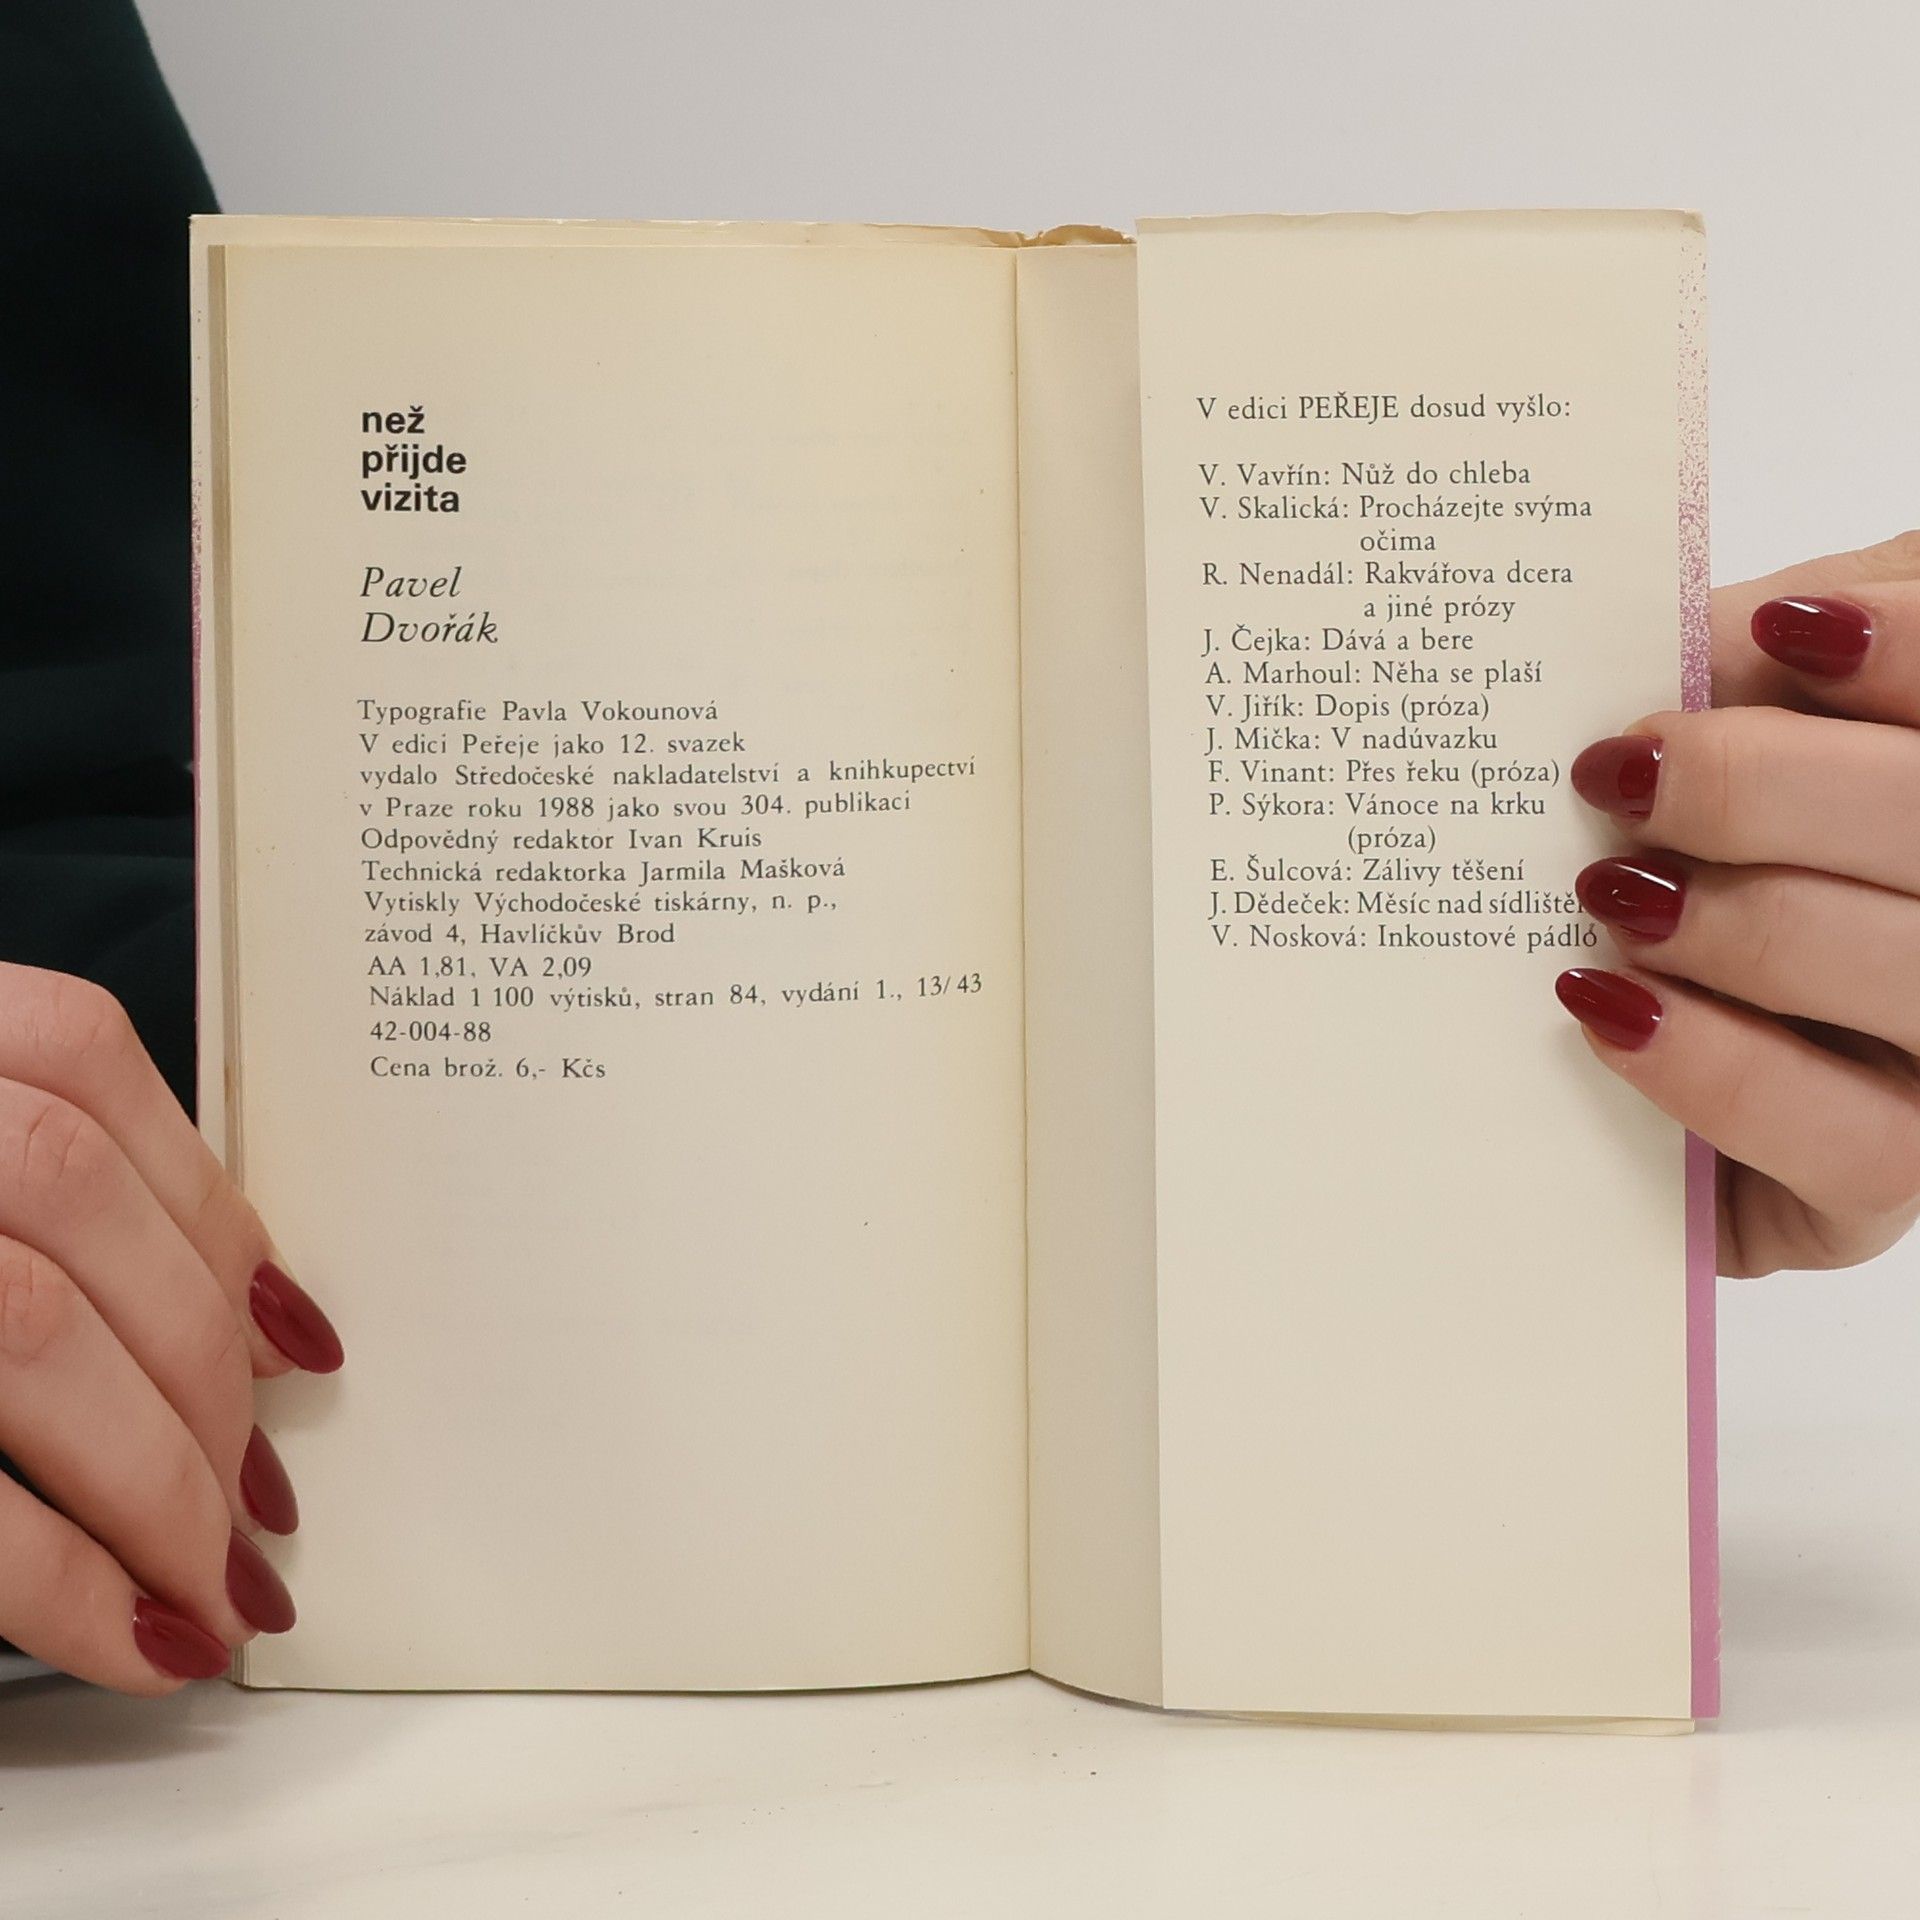 než
přijde
vizita
Pavel
Dvořák
Typografie Pavla Vokounová
V edici Peřeje jako 12. svazek
vydalo Středočeské nakladatelství a knihkupectví
v Praze roku 1988 jako svou 304. publikaci
Odpovědný redaktor Ivan Kruis
Technická redaktorka Jarmila Mašková
Vytiskly Východočeské tiskárny, n. p.,
závod 4, Havlíčkův Brod
AA 1,81, VA 2,09
Náklad 1 100 výtisků, stran 84, vydání 1., 13/43
42-004-88
Cena brož. 6,- Kčs
V edici PEŘEJE dosud vyšlo:
V. Vavřín: Nůž do chleba
V. Skalická: Procházejte svýma
očima
R. Nenadál: Rakvářova dcera
a jiné prózy
J. Čejka: Dává a bere
A. Marhoul: Něha se plaší
V. Jiřík: Dopis (próza)
J. Mička: V nadúvazku
F. Vinant: Přes řeku (próza)
P. Sýkora: Vánoce na krku
(próza)
E. Šulcová: Zálivy těšení
J. Dědeček: Měsíc nad sídlištěm
V. Nosková: Inkoustové pádlo